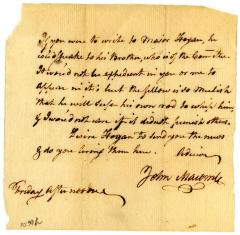 If you were to write to Major Hogan, he
could speake to his Brother, who is of the Com^tte.
It would not be expedient in you or me to
appear in it; but the fellow is so
that he will use his own rod to whip him,
& I would not care if it didn't others.
Desire Hogan to send you the news
& do you bring them here. Adieu
John Macomb
Friday afternoon